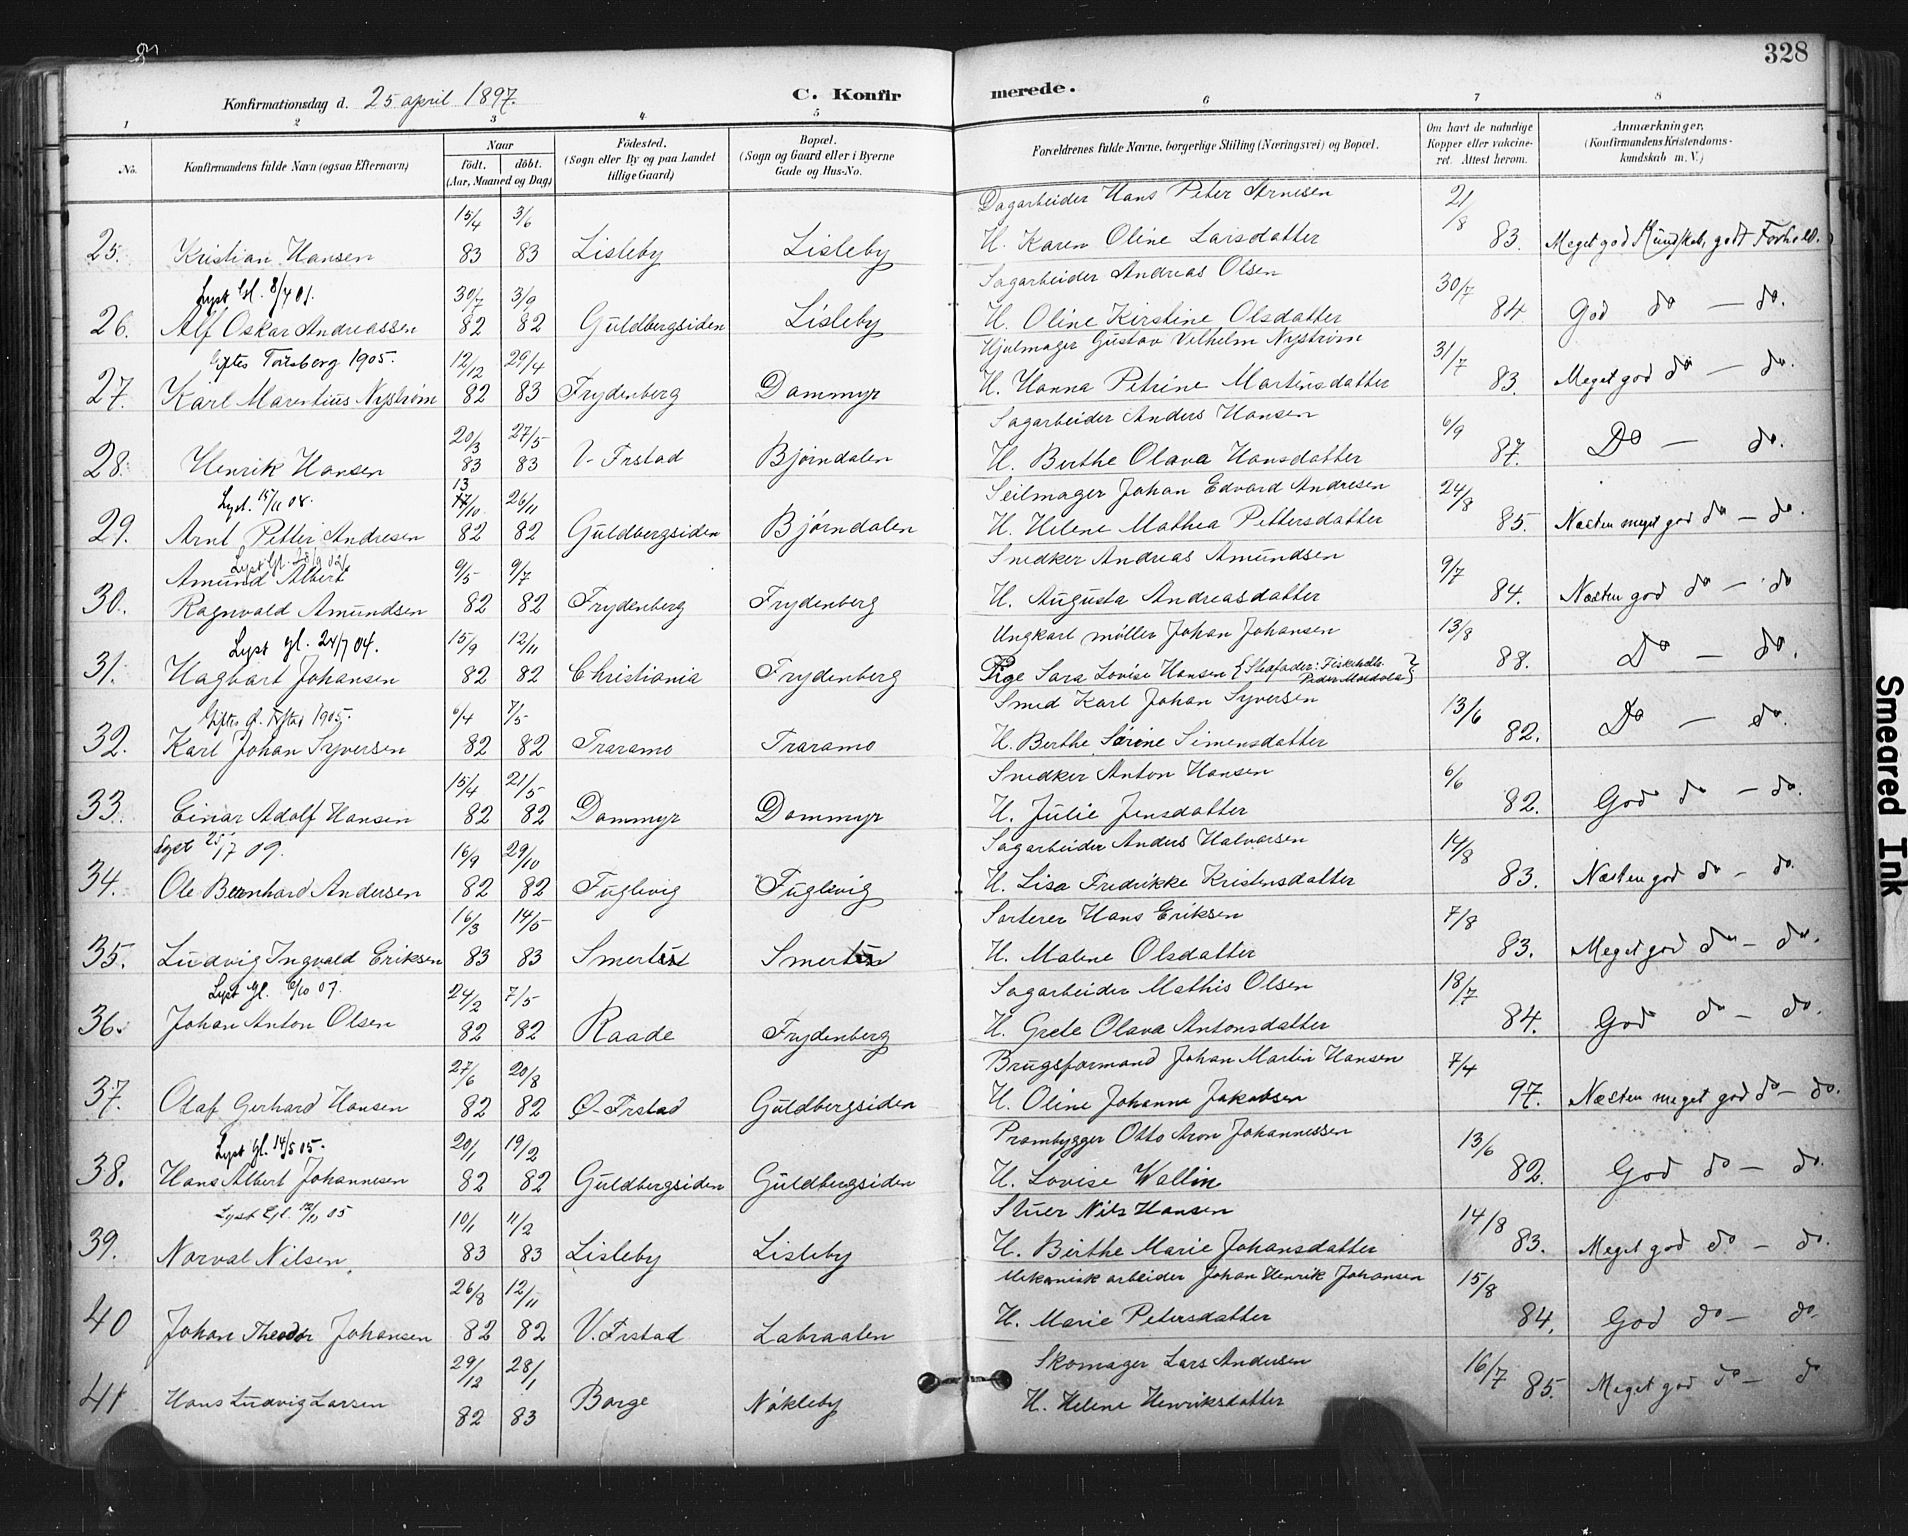 328
Konfirmationsdag d. 25 april 1897.
C. Konfirmerede.
1 2 3 4 5 6 7 8
No.
Konfirmandens fulde Navn (ogsaa Efternavn)
Naar
födt. döbt.
(Aar, Maaned og Dag)
Födested.
(Sogn eller By og paa Landet
tillige Gaard)
Bopæl.
(Sogn og Gaard eller i Byerne
Gade og Hus-No.
Forældrenes fulde Navne, borgerlige Stilling (Næringsvei) og Bopæl.
Om havt de naturlige
Kopper eller vaccine-
ret. Attest herom.
Anmærkninger,
(Konfirmandens Kristendoms-
kundskab m. V.)
15/4 3/6 Dagarbeider Hans Peter Arnesen 21/8
25. Kristian Hansen 83 83 Lisleby Lisleby H. Karen Oline Larsdatter 83. Meget god Kundskab, godt Forhold.
Lyst Gl. 8/4 01. 30/7 3/9 Sagarbeider Andreas Olsen 30/7
26. Alf Oskar Andreassen 82 82 Guldbergsiden Lisleby H. Oline Kirstine Olsdatter 84 God do — do.
Giftes Torsberg 1905. 12/12 29/4 Hjulmager Gustav Vilhelm Nystrøm 31/7
27. Karl Marentius Nystrøm 82 83 Frydenberg Dammyr H. Hanna Petrine Martinsdatter 83. Meget god do — do.
20/3 27/5 Sagarbeider Anders Hansen 6/9
28. Henrik Hansen 83 83 V. Frstad Bjørndalen H. Berthe Olava Hansdatter 87. Do — do.
Lyst. 15/11 08. 13 17/10 26/11 Seilmager Johan Edvard Andresen 24/8
29. Arnt Petter Andresen 82 82 Guldbergsiden Bjørndalen H. Helene Mathea Pettersdatter 85. Næsten meget god do — do.
Lyst Gl. 28/9 02
Amund Albert 9/5 9/7 Snedker Andreas Amundsen 9/7
30. Ragnvald Amundsen 82 82 Frydenberg Frydenberg H. Augusta Andreasdatter 84. Næsten god do — do
Lyst gl. 24/7 04. 15/9 12/11 Ungkarl møller Johan Johansen 13/8
31. Hagbart Johansen 82 82 Christiania Frydenberg Pige Sara Lovise Hansen {Stedfader: Fiskehdl. Peder} 88. Do — do.
Giftes Ø. Frstad 1905. 6/4 7/5 Smed Karl Johan Syversen 13/6
32. Karl Johan Syversen 82 82 Traramo Traramo H. Berthe Sørine Simensdatter 82. Do — do.
15/4 21/5 Snedker Anton Hansen 6/6
33. Einar Adolf Hansen 82 82 Dammyr Dammyr H. Julie Jensdatter 82. God do — do.
Lyst 25/7 09. 16/9 29/10 Sagarbeider Anders Halvorsen 14/8
34. Ole Bernhard Andersen 82 82 Fuglevig Fuglevig H. Lisa Fredrikke Kristensdatter 83. Næsten god do — do.
16/3 14/5 Sorterer Hans Eriksen 7/8
35. Ludvig Ingvald Eriksen 83 83 Smertu Smertu H. Malene Olsdatter 83. Meget god do — do.
Lyst gl. 6/10 07. 24/2 7/5 Sagarbeider Mathis Olsen 18/7
36. Johan Anton Olsen 82 82 Raade Frydenberg H. Grete Olava Antonsdatter 84. God do — do.
27/6 20/8 Brugsformand Johan Martin Hansen 7/4
37. Olaf Gerhard Hansen 82 82 Ø-Frstad Guldbergsiden H. Oline Johanne Jakobsen 97. Næsten meget god do — do.
Lyst gl. 14/5 05. 20/1 19/2 Prambygger Otto Aron Johannessen 13/6
38. Hans Albert Johannesen 82 82 Guldbergsiden Guldbergsiden H. Lovise Wallin 82. God do — do.
Lyst Gl. 12/11 05 10/1 11/2 Stuer Nils Hansen 14/8
39. Norval Nilsen 83 83 Lisleby Lisleby H. Berthe Marie Johansdatter 83. Meget god do — do.
26/8 12/11 Mekanisk arbeider Johan Henrik Johansen 15/8
40 Johan Theodor Johansen 82 82 V. Frstad Labraaten H. Marie Petersdatter 84. God do — do.
29/12 28/1 Skomager Lars Andersen 16/7
41 Hans Ludvig Larsen 82 83 Borge Nøkleby H. Helene Henriksdatter 85. Meget god do — do
Smeared Ink